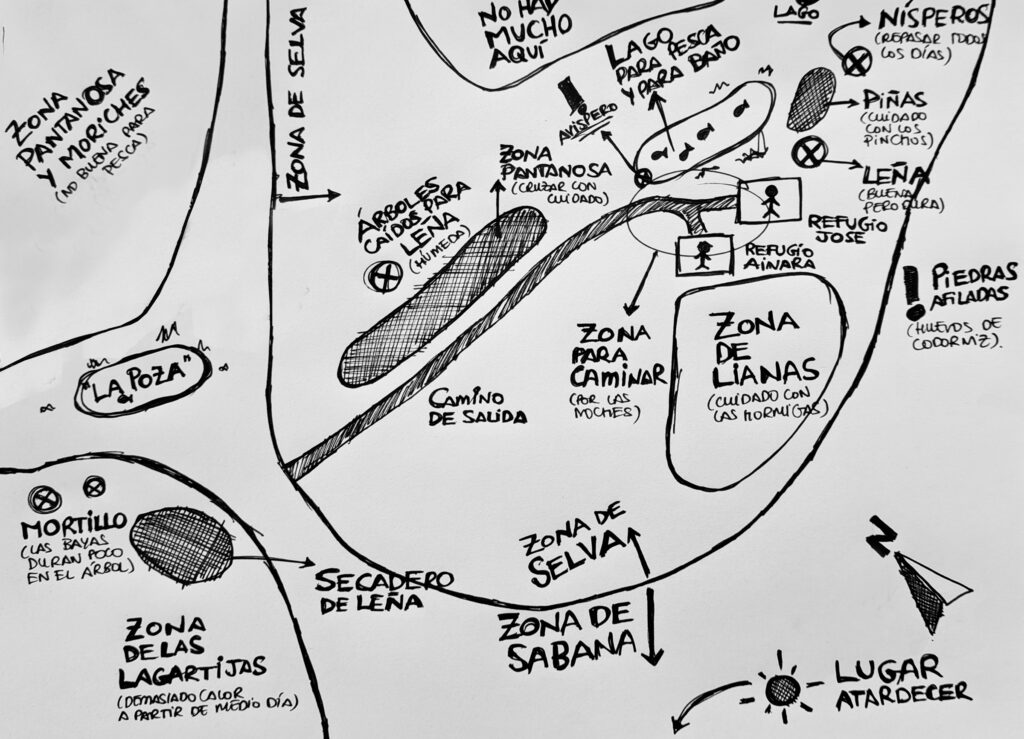 NO HAY
MUCHO
AQUÍ
LAGO
NÍSPEROS
(REPASAR TODOS
LOS DÍAS)
ZONA DE SELVA
LAGO
PARA PESCA
Y PARA BAÑO
AVISPERO
PIÑAS
(CUIDADO
CON LOS
PINCHOS)
LEÑA
(BUENA
PERO DURA)
ZONA
PANTANOSA
Y MORICHES
(NO BUENA PARA
PESCA)
ZONA
PANTANOSA
(CRUZAR CON
CUIDADO)
ÁRBOLES
CAÍDOS PARA
LEÑA
(HÚMEDA)
REFUGIO
JOSE
REFUGIO
AINARA
! PIEDRAS
AFILADAS
(HUEVOS DE
CODORNIZ).
ZONA
PARA
CAMINAR
(POR LAS
NOCHES)
ZONA
DE
LIANAS
(CUIDADO CON
LAS HORMIGAS)
"LA POZA"
CAMINO
DE SALIDA
MORTILLO
(LAS BAYAS
DURAN POCO
EN EL ÁRBOL)
SECADERO
DE LEÑA
ZONA DE
SELVA
ZONA DE
SABANA
N
ZONA
DE LAS
LAGARTIJAS
(DEMASIADO CALOR
A PARTIR DE MEDIO DÍA)
LUGAR
ATARDECER